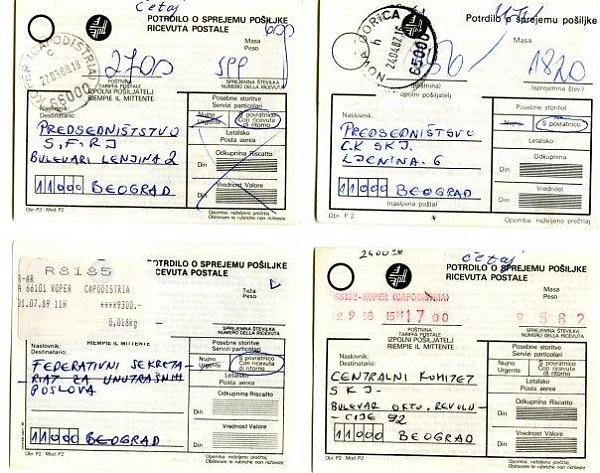 Četaj
POTRDILO O SPREJEMU POŠILJKE
RICEVUTA POSTALE
Masa
Peso
2700
SPP
66000
POŠTNINA
TARIFFA POSTALE
IZPOLNI POŠILJATELJ
RIEMPIE IL MITTENTE
SPREJEMNA ŠTEVILKA
NUMERO DELLA RICEVUTA
Naslovnik:
Destinatario:
PREDSEDNIŠTSTVO
S.F.R.J
BULEVARI LENJINA 2
11000 BEOGRAD
Posebne storitve
Servizi particolari
Nujno
Urgente
S povratnico
Con ricevuta
di ritorno
Letalsko
Posta aerea
Odkupnina Riscatto
Din
Vrednost Valore
Din
Obr. P2 Mod. P2
Opomba: neželjeno prečrtaj
Osservazione: Cancellare le rubriche non richieste
Potrdilo o sprejemu pošiljke
Masa
NOVA GORICA
24.04.87.18
65000
1820
(poštnina)
Izpolni pošiljatelj
(sprejemna štev.)
Naslovnik:
PREDSEDNIŠTVO
C.K SKJ.
LJENINA. 6
11000 BEOGRAD
(naslovna pošta)
Posebne storitve
Nujno
S povratnico
Letalsko
Odkupnina
Din
Vrednost
Din
Obr. P 2
Opomba: neželjeno prečrtaj
R8185
AR-AR
A 66101 KOPER CAPODISTRIA
01.07.89 11H ****9300.-
0,018kg
POTRDILO O SPREJEMU POŠILJKE
RICEVUTA POSTALE
Teža
Peso
SPREJEMNA ŠTEVILKA
NUMERO DELLA RICEVUTA
RIEMPIE IL MITTENTE
Naslovnik:
Destinatario:
FEDERATIVNI SEKRETA-
RIAT ZA UNUTRAŠNIH
POSLOVA
11000 BEOGRAD
Posebne storitve
Servizi particolari
Nujno
Urgente
S povratnico
Con ricevuta
di ritorno
Letalsko
Posta aerea
Odkupnina Riscatto
Din
Vrednost Valore
Din
Obr. P2 Mod. P2
Opomba: neželjeno prečrtaj
Osservazione: Cancellare le rubriche non richieste
Četaj
POTRDILO O SPREJEMU POŠILJKE
RICEVUTA POSTALE
66102-KOPER (CAPODISTRIA)
POŠTNINA
TARIFFA POSTALE
IZPOLNI POŠILJATELJ
RIEMPIE IL MITTENTE
SPREJEMNA ŠTEVILKA
NUMERO DELLA RICEVUTA
Naslovnik:
Destinatario:
CENTRALNI KOMITET
SKJ-
BULEVAR OKTO. REVOLU-
CIJE 92
11000 BEOGRAD
Posebne storitve
Servizi particolari
Nujno
Urgente
S povratnico
Con ricevuta
di ritorno
Letalsko
Posta aerea
Odkupnina Riscatto
Din
Vrednost Valore
Din
Obr. P2 Mod. P2
Opomba: neželjeno prečrtaj
Osservazione: Cancellare le rubriche non richieste